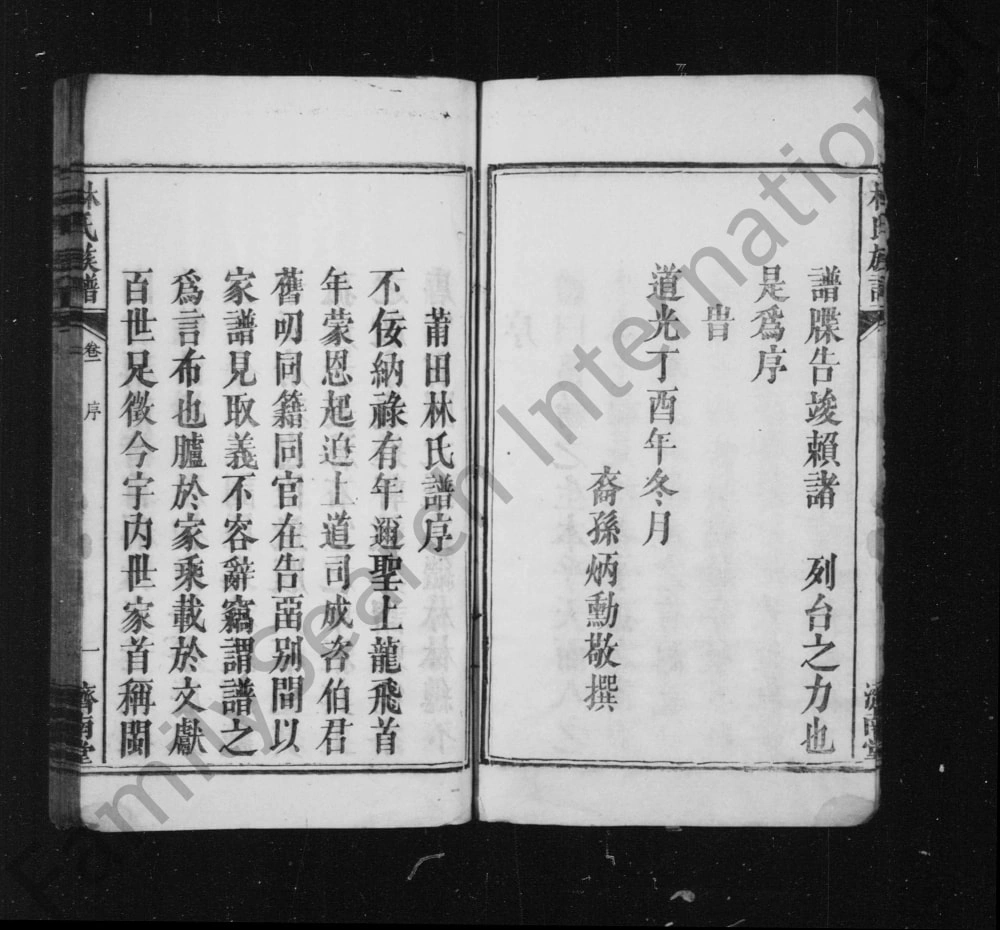 林氏族譜
譜牒告竣賴諸　列台之力也
是爲序
旹
道光丁酉年冬月
裔孫炳勳敬撰
濟南堂
莆田林氏譜序
不佞納祿有年邇聖上龍飛首
年蒙恩起迫上道司成咨伯君
舊叨同籍同官在告畱别間以
家譜見取義不容辭竊謂譜之
爲言布也臚於家乘載於文獻
百世足徵今宇内世家首稱閩
林氏族譜
卷一
序
一
濟南堂
FamilySearch International